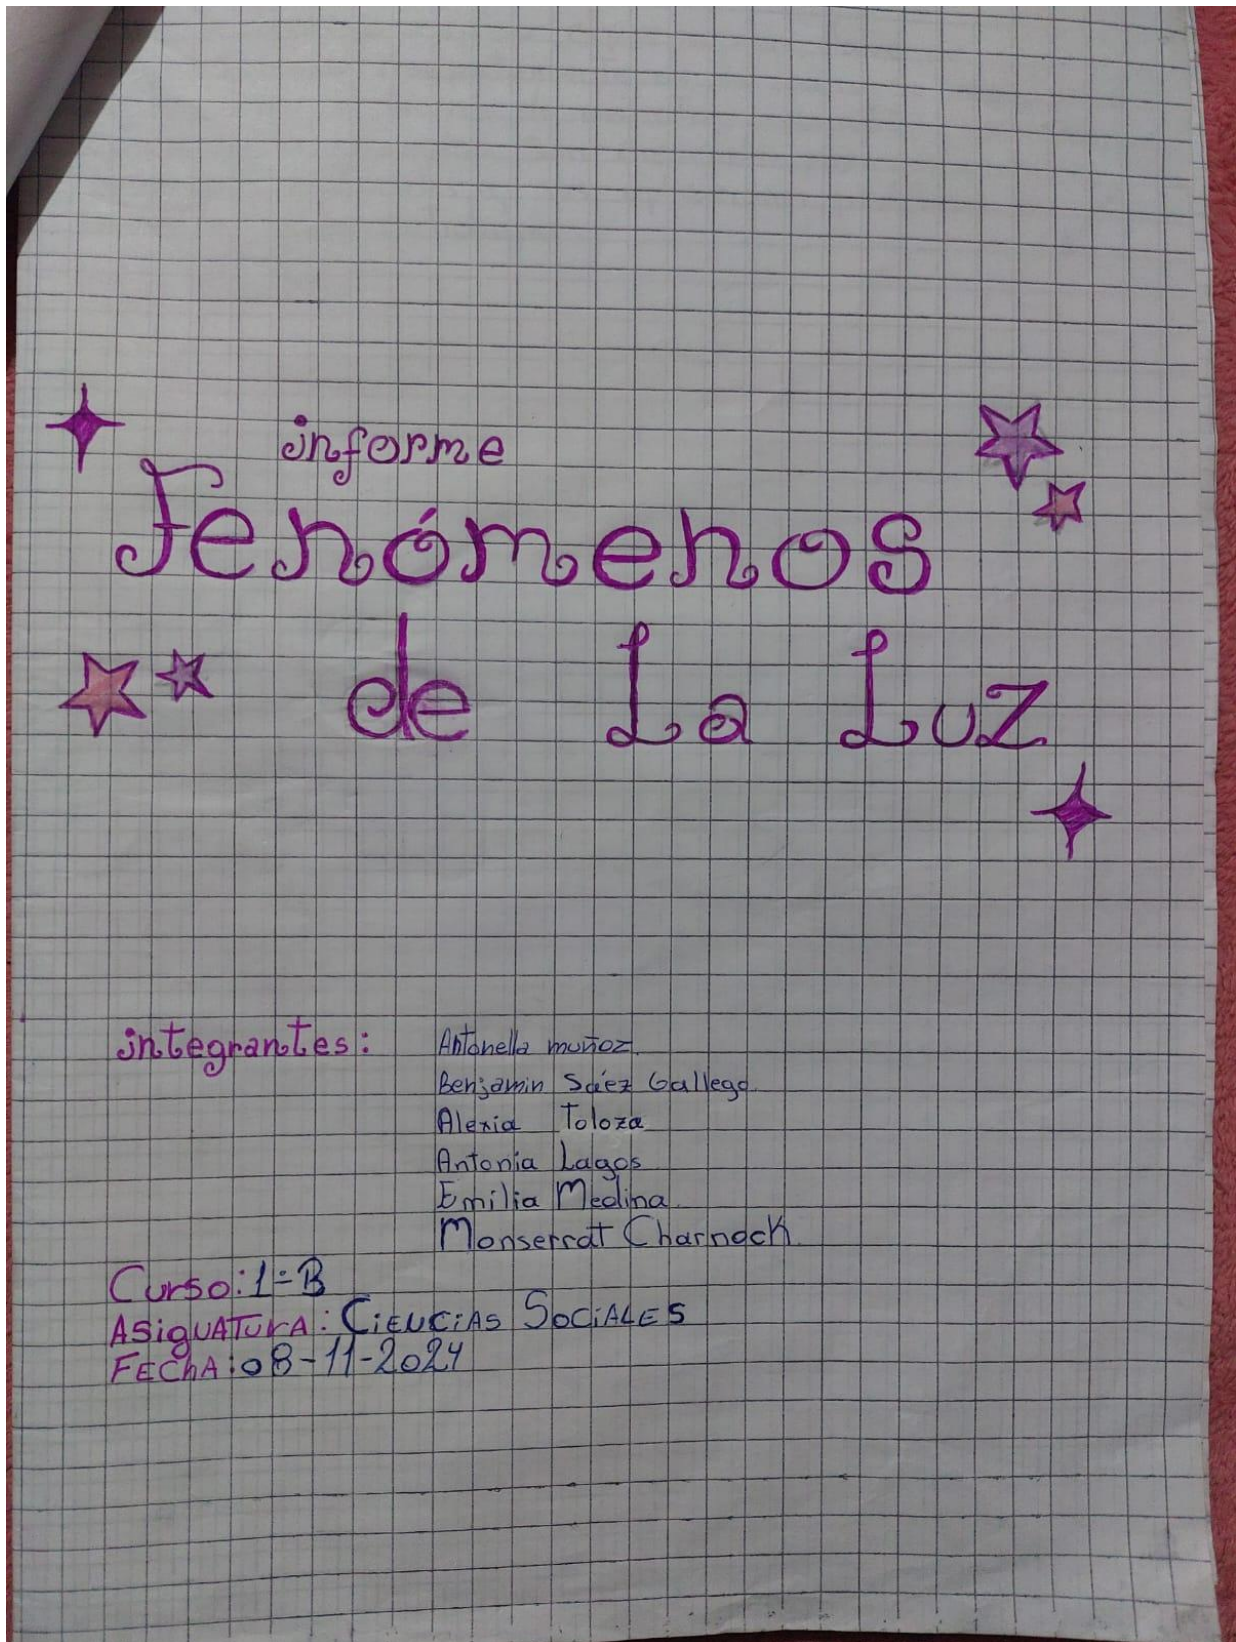 informe
Fenómenos
de La Luz
integrantes: Antonella muñoz
Benjamin Sáez Gallego
Alexia Toloza
Antonia Lagos
Emilia Medina
Monserrat Charnock
Curso: 1-B
ASiguATurA: CiENCiAS SOCiALES
FEChA: 08-11-2024